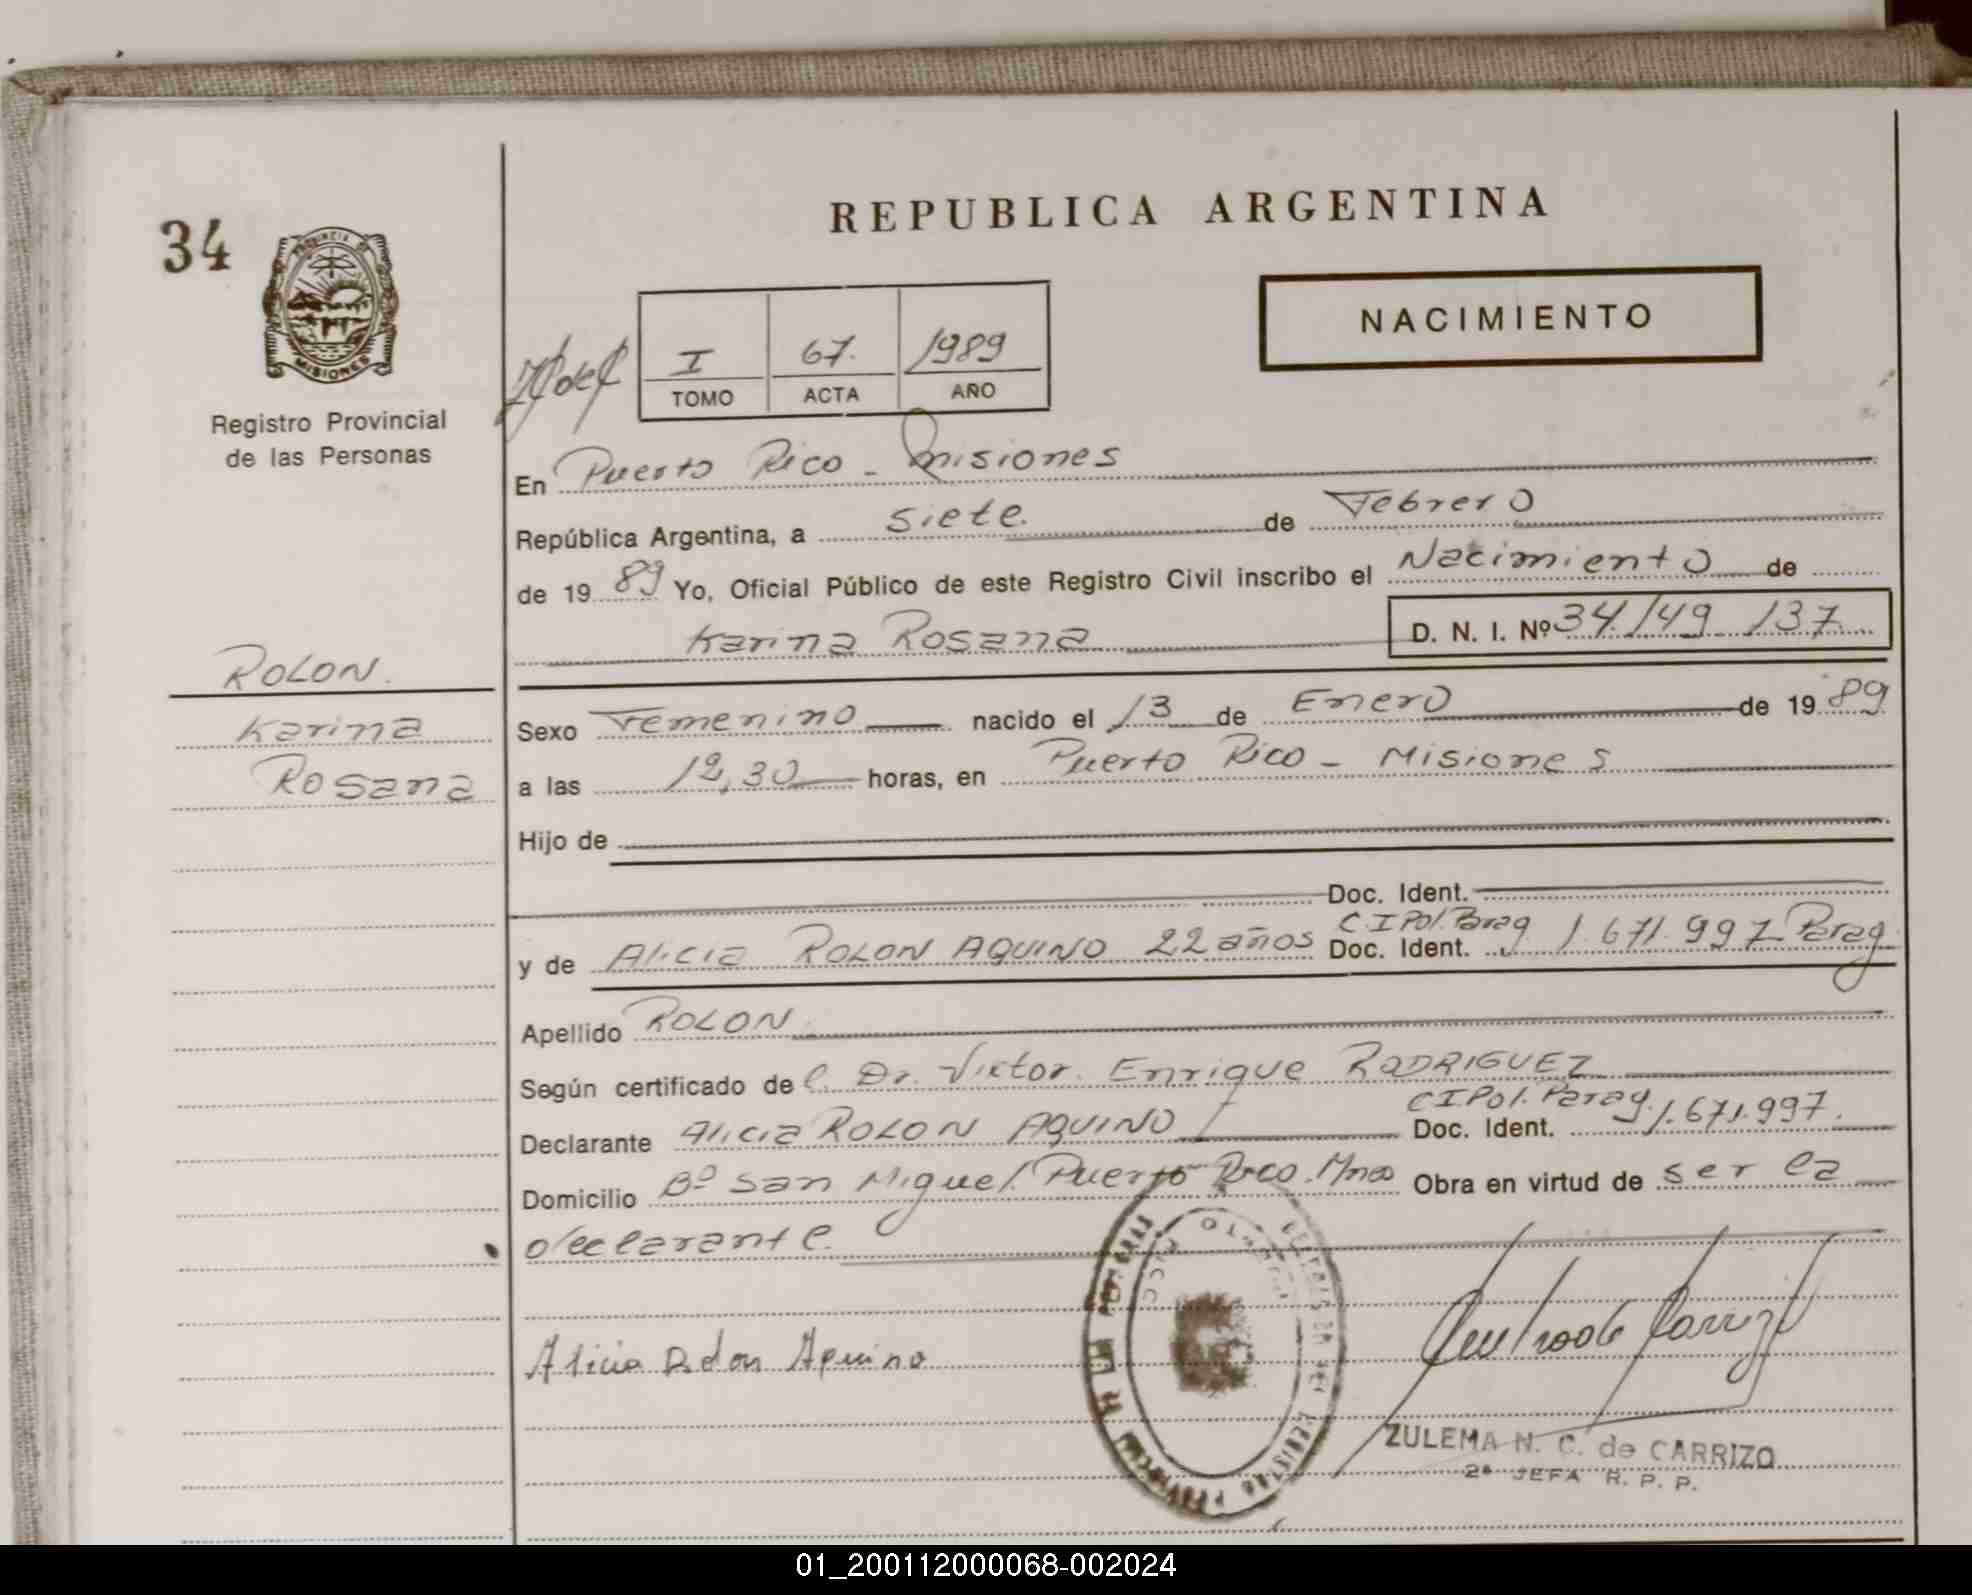 REPUBLICA ARGENTINA
34
PROVINCIA DE
MISIONES
Registro Provincial
de las Personas
NACIMIENTO
I 67. 1989
TOMO ACTA AÑO
En Puerto Rico - Misiones
República Argentina, a siete de Febrero
de 1989 Yo, Oficial Público de este Registro Civil inscribo el Nacimiento de
Karina Rosana D. N. I. Nº 34.149 137
ROLON.
Karina
Rosana
Sexo Femenino nacido el 13 de Enero de 1989
a las 12,30 horas, en Puerto Rico - Misiones
Hijo de
Doc. Ident.
C.I Pol. Parag
y de Alicia ROLON AQUINO 22 años Doc. Ident. 1.671.997 Parag
Apellido ROLON
Según certificado del Dr. Victor Enrique RODRIGUEZ
C.I Pol. Parag.
Declarante Alicia ROLON AQUINO Doc. Ident. 1.671.997.
Domicilio Bº San Miguel Puerto Rico. Mnes Obra en virtud de ser la
declarante.
Alicia Rolon Aquino
PUERTO RICO
ZULEMA N. C. de CARRIZO
2ª JEFA R. P. P.
01_200112000068-002024